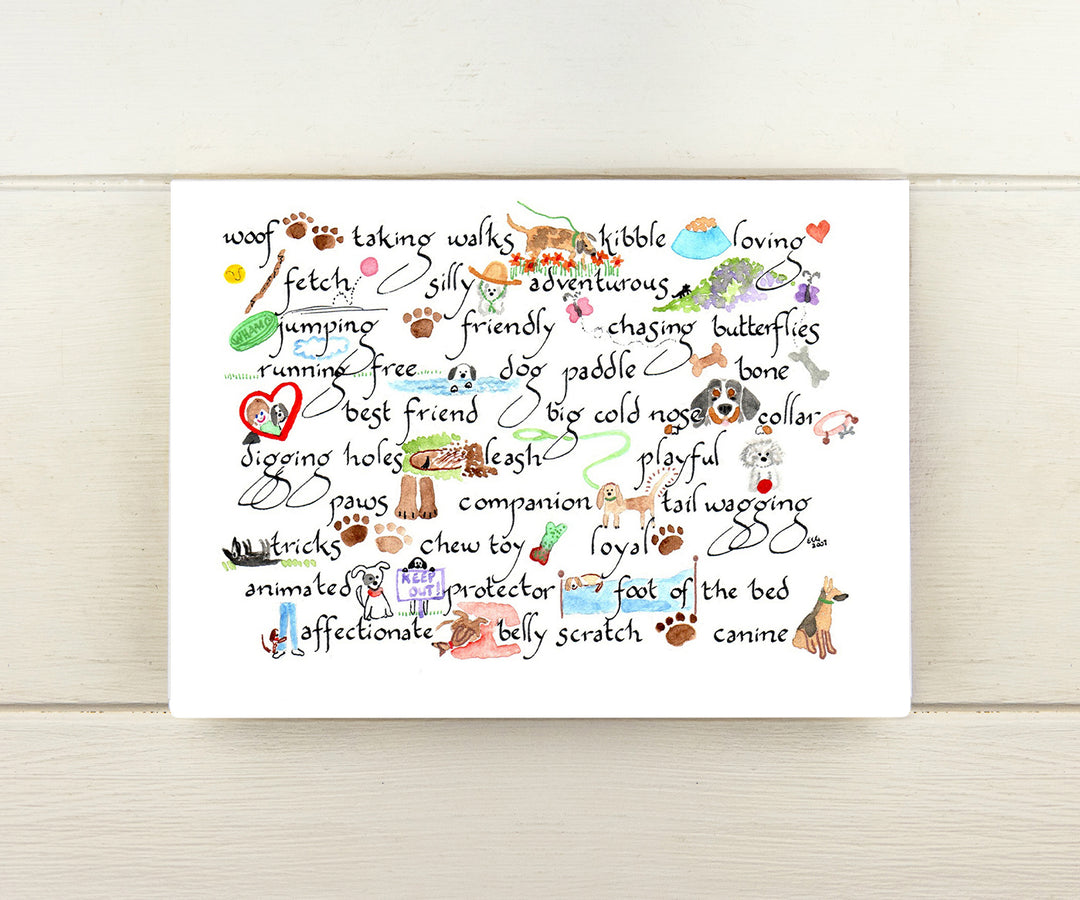 woof taking walks kibble loving
fetch silly adventurous
WHAMO jumping friendly chasing butterflies
running free dog paddle bone
best friend big cold nose collar
digging holes leash playful
paws companion tail wagging
tricks chew toy loyal
2007
animated KEEP OUT! protector foot of the bed
affectionate belly scratch canine